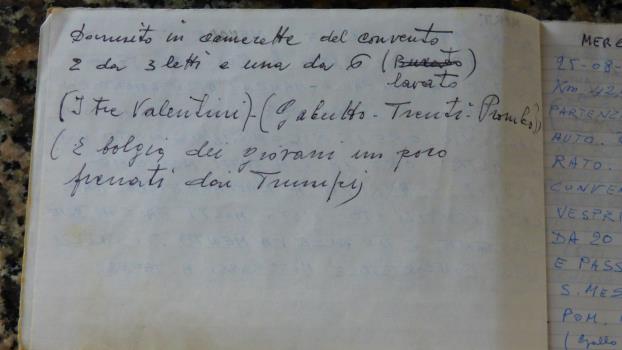 Dormito in camerette del convento
2 da 3 letti e una da 6 (
lavato )
(I tre Valentini)-(Gabutto- Trenti-
( E bolgia dei giovani un poco
frenati dai
MERC
25-08-
Km. 42
PARTENZ
AUTO.
RATO.
CONVEN
VESPRI
DA 20
E PASS
S. MES
POM.
(Gallo